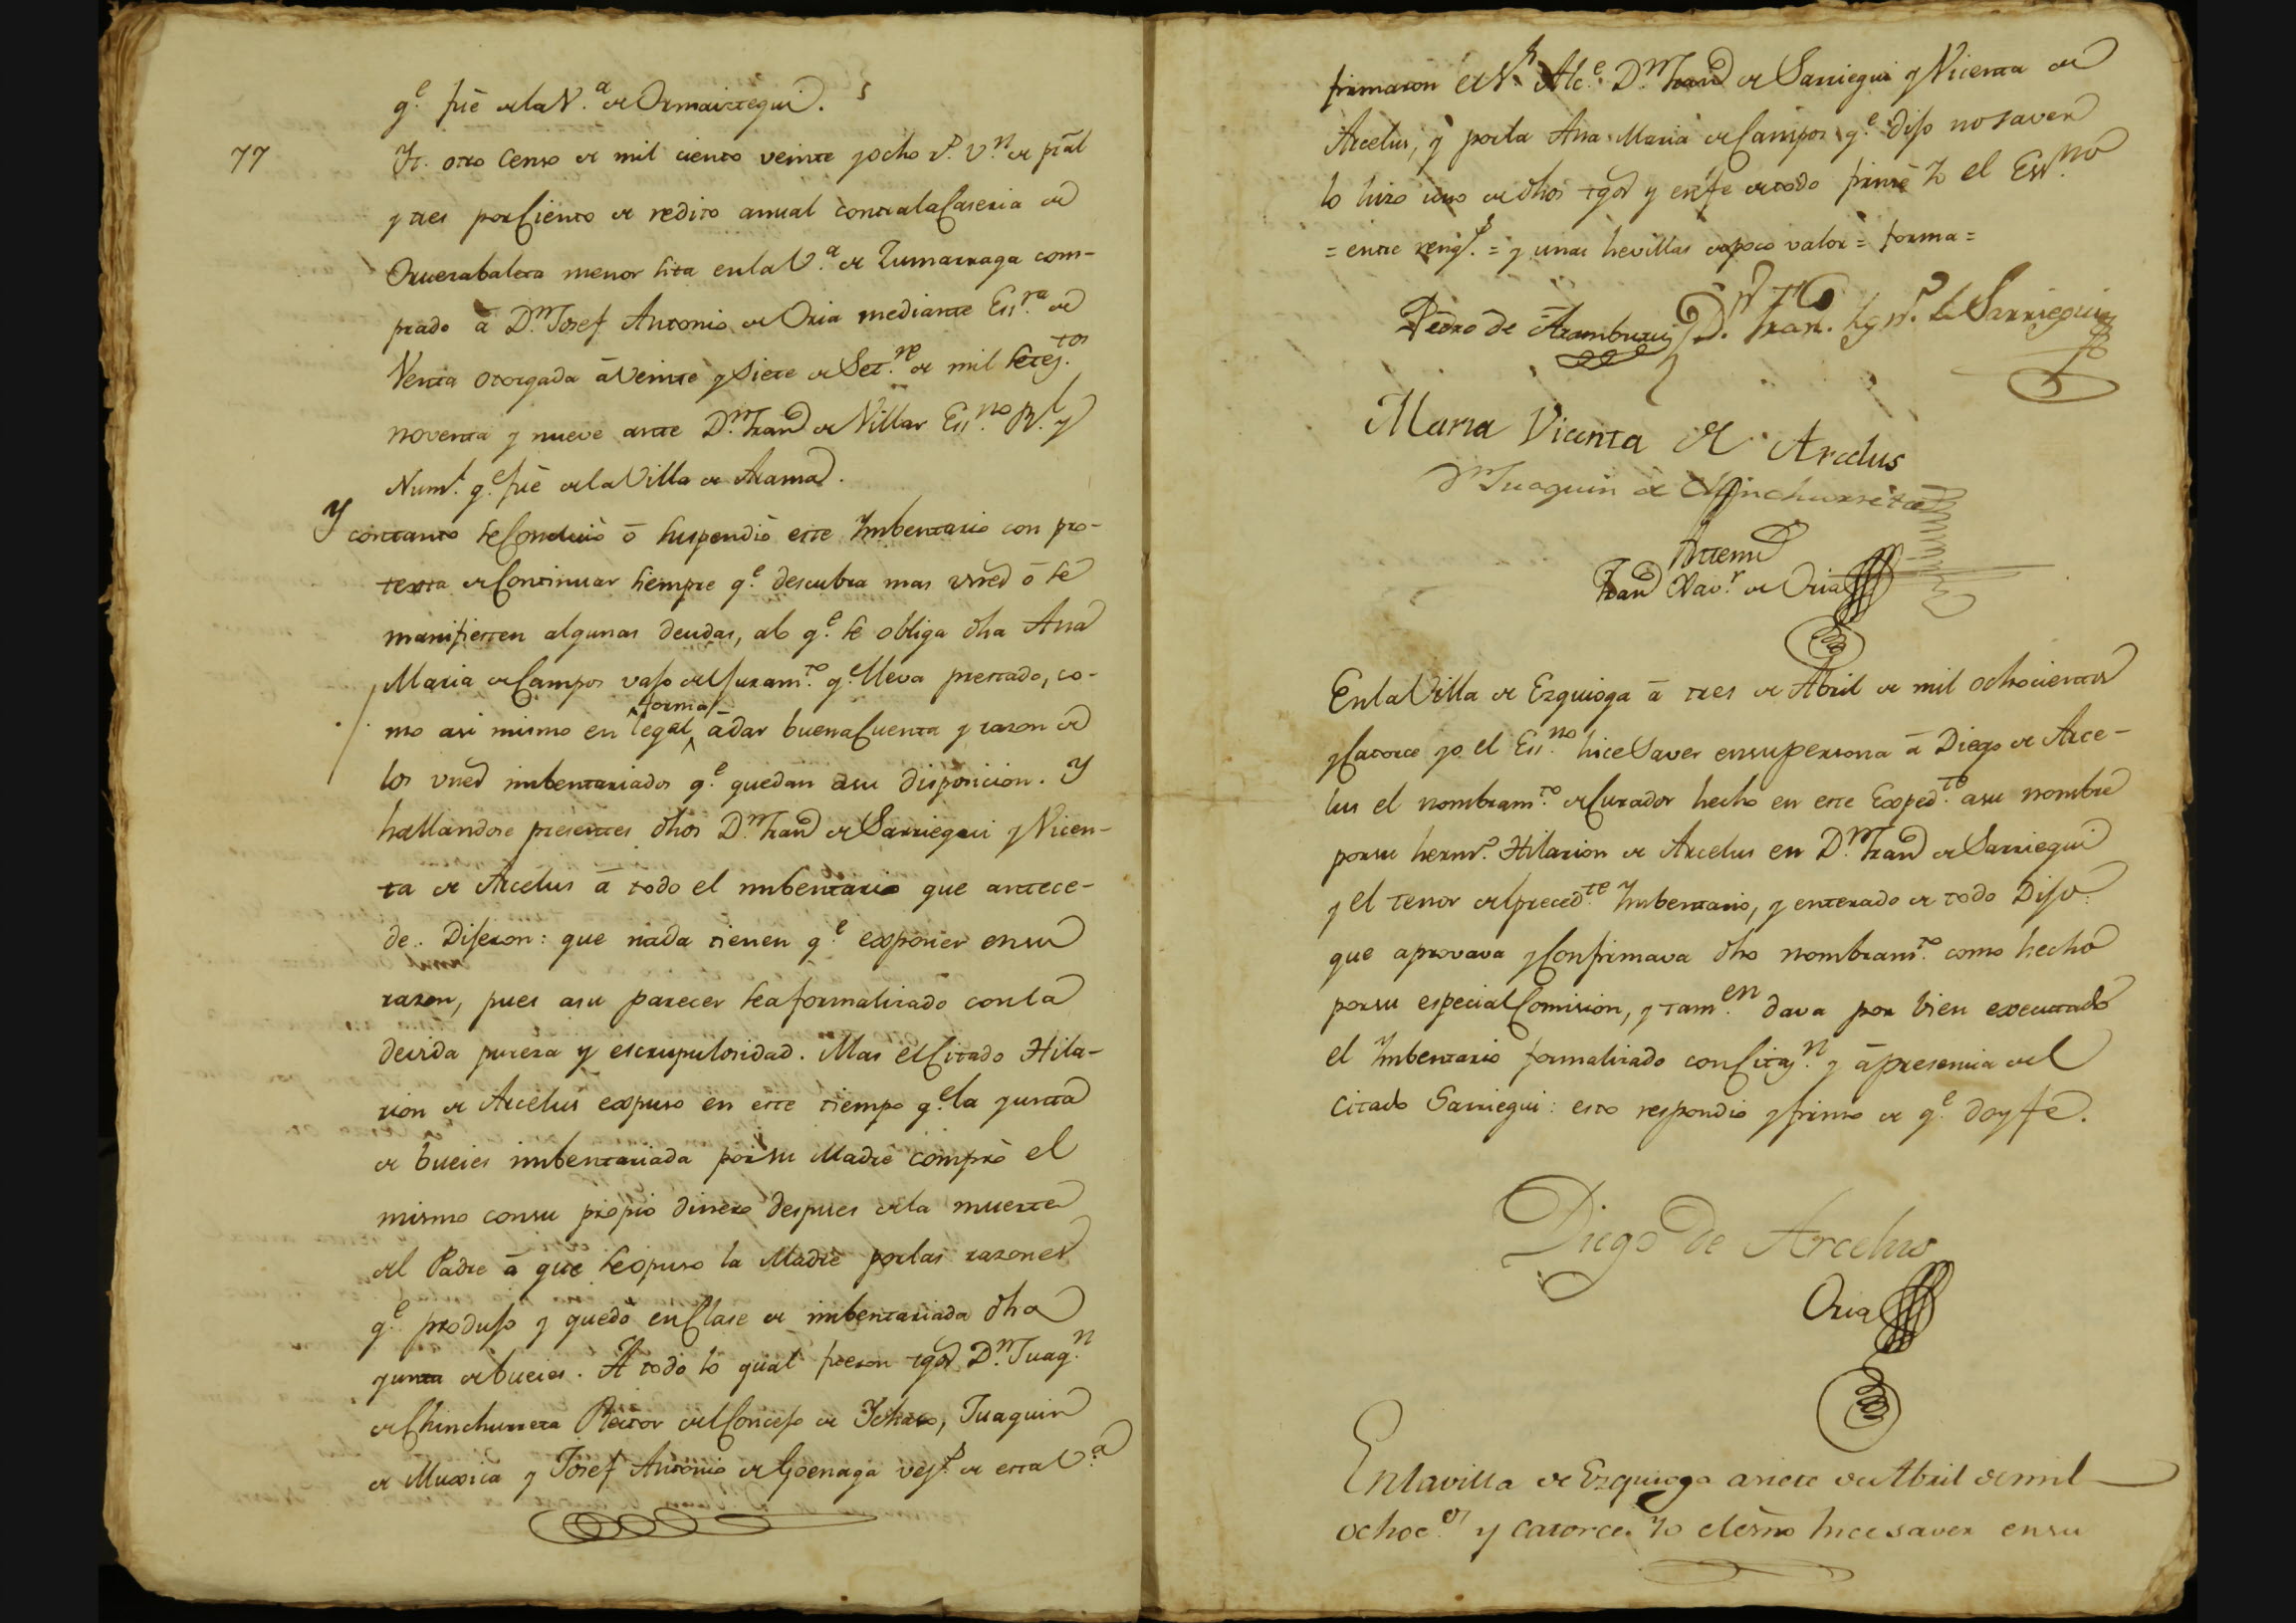 q.e fué de la V.a de Ormaiztegui.
77
Yt. otro Censo de mil ciento veinte y ocho r.s v.n de pral
y tres por Ciento de redito anual contra la Caseria de
Oruesabaleta menor sita en la V.a de Zumarraga com-
prado á D.n Josef Antonio de Oria mediante Ess.ra de
Venta otorgada á veinte y siete de Set.re de mil setez.tos
noventa y nueve ante D.n Fran.co de Villar Ess.no R.l y
Num.l q.e fué de la Villa de Arama.
Y con tanto se Concluió ó suspendió este Ymbentario con pro-
texta de Continuar siempre q.e descubra mas vnes ó se
manifiesten algunas deudas, a lo q.e se obliga dha Ana
Maria de Campos vajo del Juram.to q.e lleva prestado, co-
forma
mo asi mismo en legal á dar buena Cuenta y razon de
los vnes imbentariados q.e quedan a su disposicion. Y
hallandose presentes dhos D.n Fran.co de Sarriegui y Vicen-
ta de Arcelus á todo el imbentario que antece-
de. Dijeron: que nada tienen q.e exponer en su
razon, pues a su parecer se a formalizado con la
devida pureza y escrupulosidad. Mas el Citado Hila-
rion de Arcelus expuso en este tiempo q.e la yunta
de bueies imbentariada por su Madre compró el
mismo con su propio dinero despues de la muerte
del Padre á que se opuso la Madre por las razones
q.e produjo y quedó en Clase de imbentariada dha
yunta de bueies. A todo lo qual fueron tgos D.n Juaq.n
de Chinchurreta Rector del Concejo de Ychaso, Juaquin
de Muxica y Josef Antonio de Goenaga vez.s de esta V.a
firmaron el S.r Alc.e D.n Fran.co de Sarriegui y Vicenta de
Arcelus, y por la Ana Maria de Campos q.e dijo no saver
lo hizo uno de dhos tgos y en fe de todo firmé Yo el Ess.no
= entre reng.s = y unas hevillas de poco valor = forma =
Pedro de Aramburu D. Fran. Ign.o de Sarriegui
Maria Vicenta de Arcelus
D.n Juaquin de Chinchurreta
Antemi
Fran.co Xav.r de Oria
En la Villa de Ezquioga á tres de Abril de mil ochocientos
y Catorce yo el Ess.no hice Saver en su persona á Diego de Arce-
lus el nombram.to de Curador hecho en este Exped.te a su nombre
por su herm.o Hilarion de Arcelus en D.n Fran.co de Sarriegui
y el tenor del preced.te Ymbentario, y enterado de todo Dijo:
que aprovava y Confirmava dho nombram.to como hecho
por su especial Comision, y tam.en dava por bien executado
el Ymbentario formalizado con Citaz.n y á presencia del
citado Sarriegui: esto respondió y firmó de q.e doy fe.
Diego de Arcelus
Oria
En la villa de Ezquioga a siete de Abril de mil
ochoc.os y catorce. Yo el esno hice saver en su